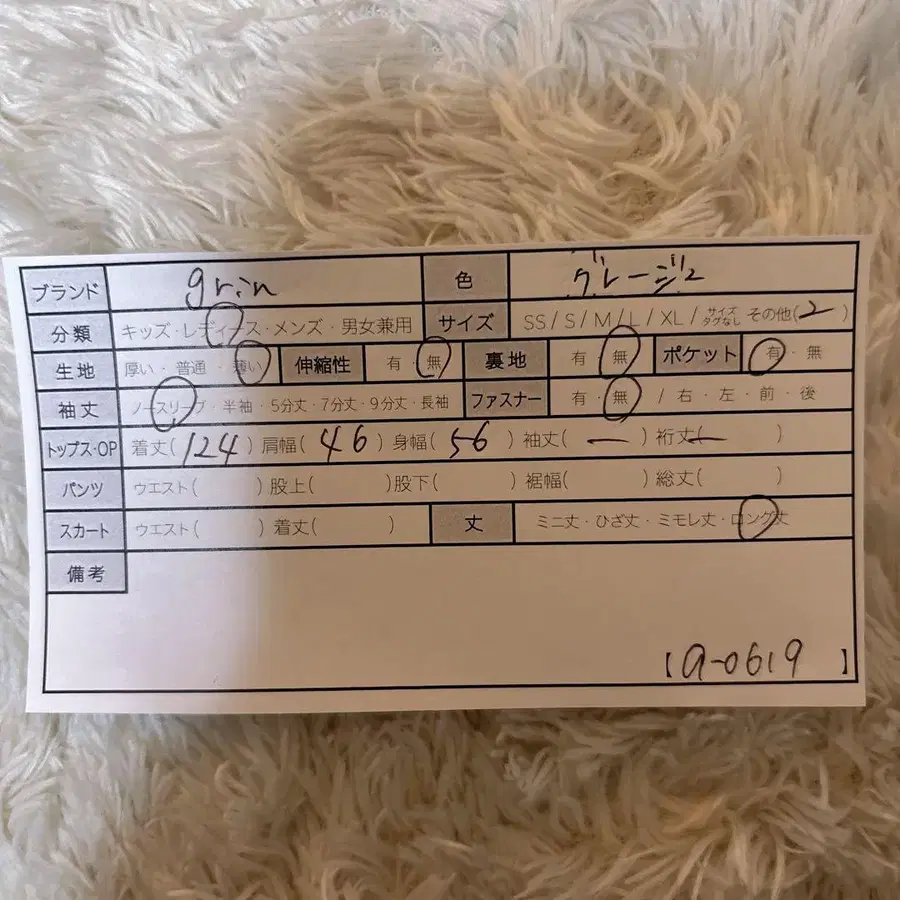 ブランド grin 色 グレージュ
分類 キッズ・レディース・メンズ・男女兼用 サイズ SS / S / M / L / XL / サイズタグなし その他(2)
生地 厚い・普通・薄い 伸縮性 有・無 裏地 有・無 ポケット 有・無
袖丈 ノースリーブ・半袖・5分丈・7分丈・9分丈・長袖 ファスナー 有・無 / 右・左・前・後
トップス・OP 着丈(124) 肩幅(46) 身幅(56) 袖丈(ー) 裄丈(ー)
パンツ ウエスト( ) 股上( ) 股下( ) 裾幅( ) 総丈( )
スカート ウエスト( ) 着丈( ) 丈 ミニ丈・ひざ丈・ミモレ丈・ロング丈
備考
【a-0619】